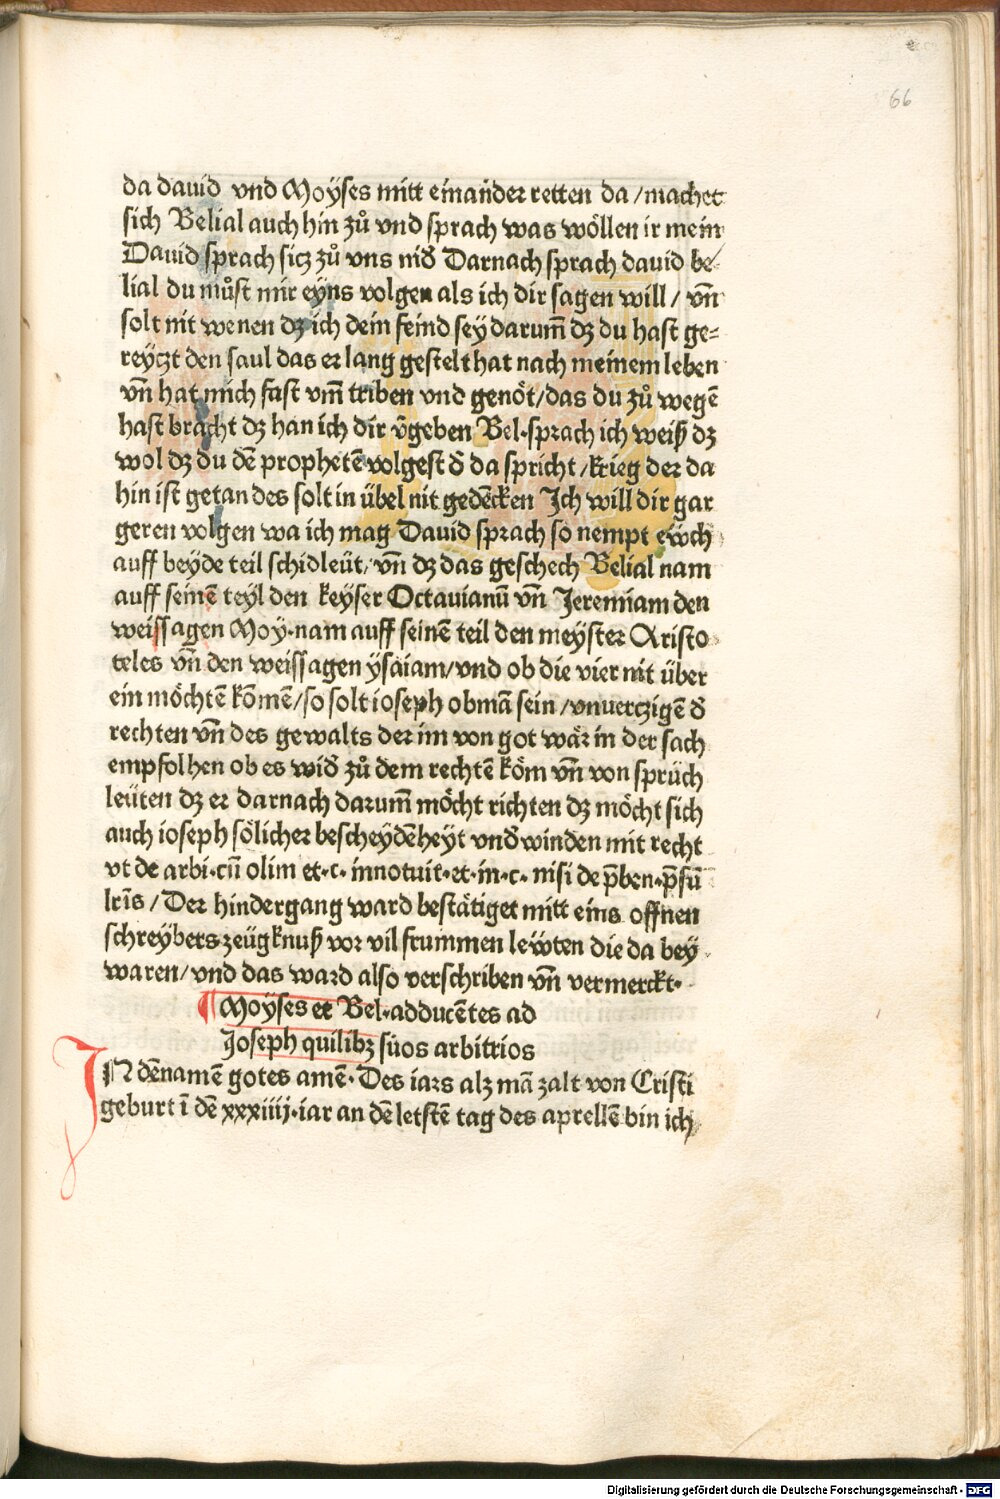 66
da dauid vnd Moÿses mitt einander retten da /machet
sich Belial auch hin zů vnd sprach was wöllen ir mein
Dauid sprach sicz zů vns nid̄ Darnach sprach dauid be⸗
lial du můst mir eÿns volgen als ich dir sagen will / vn̄
solt nit wenen dz ich dein feind seÿ darum̄ dz du hast ge⸗
reÿczt den saul das er lang gestelt hat nach meinem leben
vn̄ hat mich fast vm̄ triben vnd genöt/das du zů wegē
hast bracht dz han ich dir v̄geben Bel·sprach ich weiß dz
wol dz du dē prophetē volgest d̄ da spricht /krieg der da
hin ist getan des solt in übel nit gedēcken Jch will dir gar
geren volgen wa ich mag Dauid sprach so nempt ewch
auff beyde teil schidleüt/vn̄ dz das geschech Belial nam
auff seinē teyl den keyser Octauianū vn̄ Jeremiam den
weissagen Moy·nam auff seinē teil den meyster Aristo
teles vn̄ den weissagen ysaiam/vnd ob die vier nit über
ein möchtē kōmē/so solt ioseph obmā sein /vnuerczigē d̄
rechten vn̄ des gewalts der im von got wär in der sach
empfolhen ob es wid̄ zů dem rechtē köm vn̄ von sprüch
leüten dz er darnach darum̄ möcht richten dz möcht sich
auch ioseph sölicher bescheydēheyt vnd̄winden mit recht
vt de arbi·cū olim et·c· innotuit·et·in·c· nisi de p̄ben·p̄sū
lr̄is /Der hindergang ward bestätiget mitt eins offnen
schreybers zeügknuß vor vil frummen lewten die da bey
waren/vnd das ward also verschriben vn̄ vermerckt·
¶ Moÿses et Bel·adducētes ad
Joseph quilibz suos arbitrios
JN dē namē gotes amē· Des iars alz mā zalt von Cristi
geburt ī dē xxxiiij·iar an dē letstē tag des aprellē bin ich
Digitalisierung gefördert durch die Deutsche Forschungsgemeinschaft - DFG